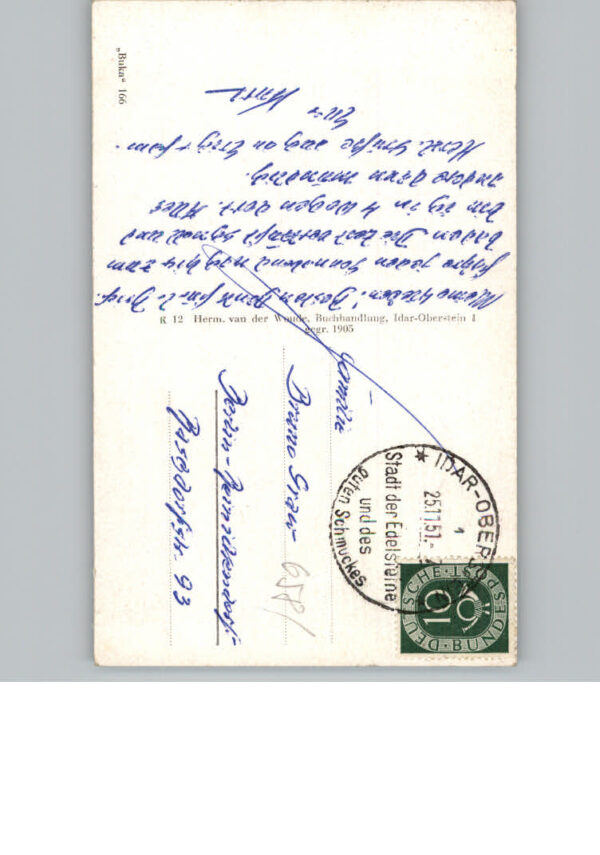 „Buka“ 166
Meine Lieben! Besten Dank für l. Brief.
fahre jeden Sonnabend nach hier zum
baden. Die Zeit schnell und
bin ich in 4 Wochen dort. Alles
andere dann mündlich.
Herzl. Grüße auch an Erich + Fam.
Euer
Kurt
K 12 Herm. van der Woude, Buchhandlung, Idar-Oberstein 1
gegr. 1905
Familie
Bruno Grau
Berlin-Reinickendorf-
93
658/
IDAR-OBERST
1
25.11.51.-
Stadt der Edelsteine
und des
guten Schmuckes
DEUTSCHE BUNDESPOST
10